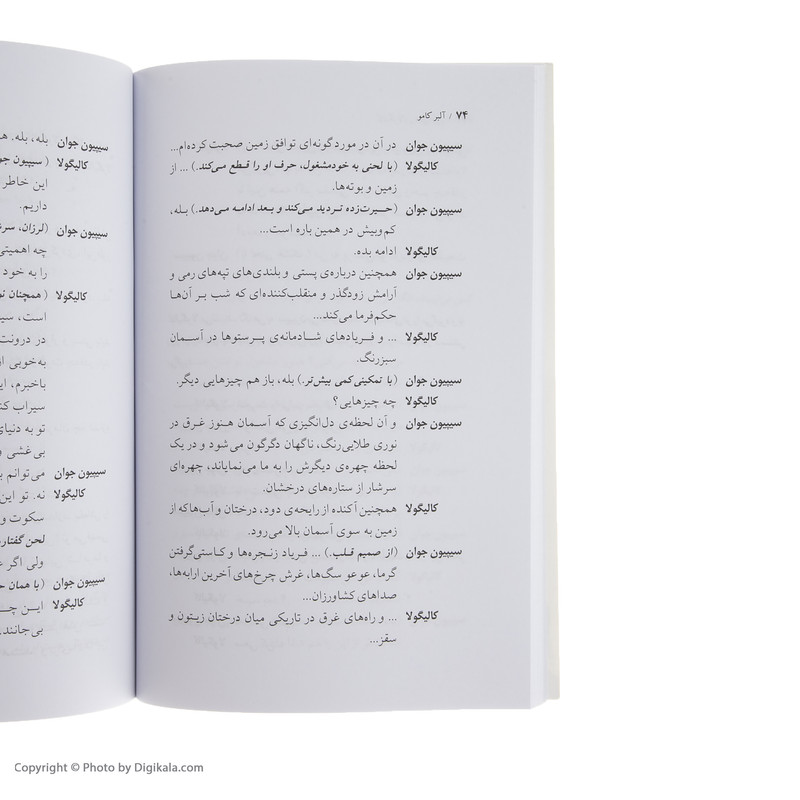 ۷۴ / آلبر کامو
سیپیون جوان در آن در مورد گونه‌ای توافق زمین صحبت کرده‌ام...
کالیگولا (با لحنی به خودمشغول، حرف او را قطع می‌کند.) ... از
زمین و بوته‌ها.
سیپیون جوان (حـیـرت‌زده تردید می‌کند و بعد ادامه می‌دهد.) بـله،
کم‌وبیش در همین باره است...
کالیگولا ادامه بده.
سیپیون جوان همچنین درباره‌ی پستی و بلندی‌های تپه‌های رمی و
آرامش زودگذر و منقلب‌کننده‌ای که شب بر آن‌ها
حکم‌فرما می‌کند...
کالیگولا ... و فـریادهای شـادمانه‌ی پـرستوها در آسـمان
سبزرنگ.
سیپیون جوان (با تمکینی کمی بیش‌تر.) بله، باز هم چیزهایی دیگر.
کالیگولا چه چیزهایی؟
سیپیون جوان و آن لحظه‌ی دل‌انگیزی که آسمان هـنوز غـرق در
نوری طلایی‌رنگ، ناگهان دگرگون می‌شود و در یک
لحظه چهره‌ی دیگرش را به ما می‌نمایاند، چهره‌ای
سرشار از ستاره‌های درخشان.
کالیگولا همچنین آکنده از رایحه‌ی دود، درختان و آب‌ها که از
زمین به سوی آسمان بالا می‌رود.
سیپیون جوان (از صمیم قـلب.) ... فـریاد زنـجره‌ها و کـاستی‌گرفتن
گرما، عو عو سگ‌ها، غرش چرخ‌های آخرین ارابه‌ها،
صداهای کشاورزان...
کالیگولا ... و راه‌های غرق در تاریکی میان درختان زیـتون و
سقز...
سیپیون جوان بله، بله.
کالیگولا (سیپیون
این خاطر
داریم.
سیپیون جوان (لرزان،
چه اهمیتی
را به خود
کالیگولا (همچنان
است،
در درونت
به‌خوبی
باخبرم،
سیراب
تو به دنیای
بی‌غشی
سیپیون جوان می‌توانم
کالیگولا نه. تو این
سکوت و
لحن
ولی اگر
سیپیون جوان (با همان
کالیگولا ایـن
بی‌جانند،
Copyright © Photo by Digikala.com